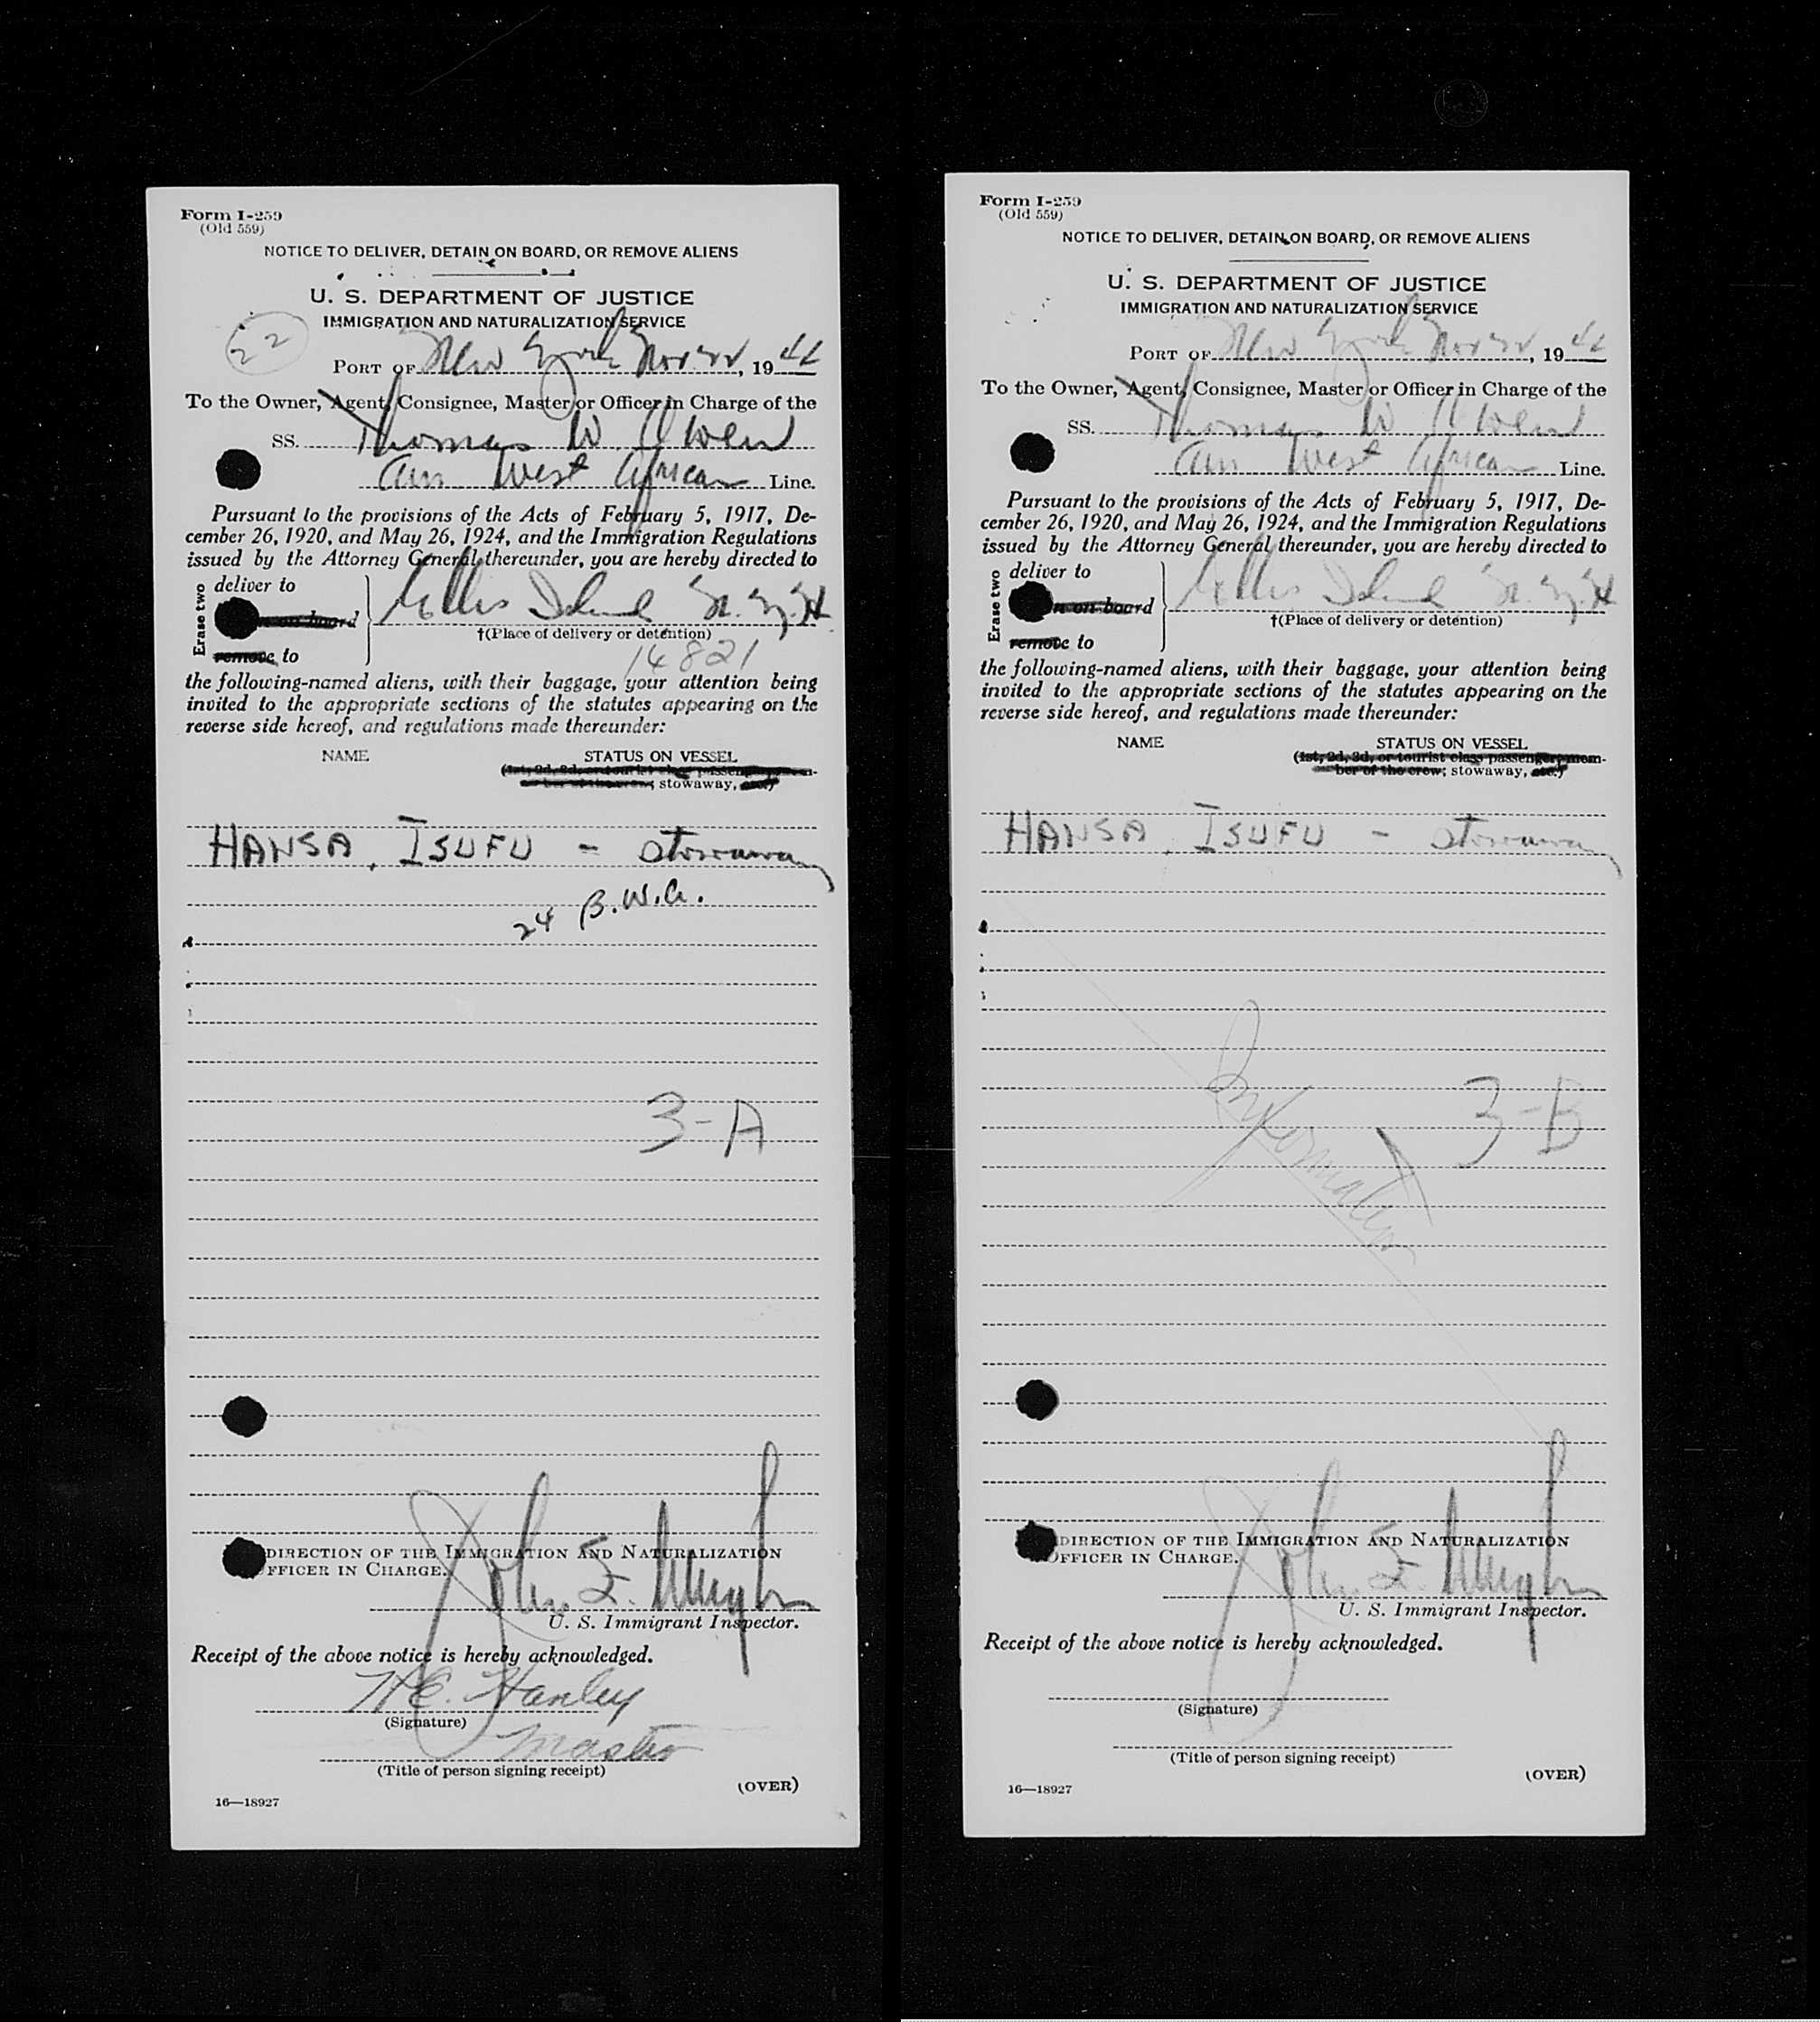 Form I-259
(Old 559)
NOTICE TO DELIVER, DETAIN ON BOARD, OR REMOVE ALIENS
U. S. DEPARTMENT OF JUSTICE
IMMIGRATION AND NATURALIZATION SERVICE
22
PORT OF New York Nov 22, 1944
To the Owner, Agent, Consignee, Master or Officer in Charge of the
SS. Thomas W Owen
Am West African Line.
Pursuant to the provisions of the Acts of February 5, 1917, De-
cember 26, 1920, and May 26, 1924, and the Immigration Regulations
issued by the Attorney General thereunder, you are hereby directed to
Erase two
deliver to
n on board
remove to
Ellis Island N.Y.H
†(Place of delivery or detention)
14821
the following-named aliens, with their baggage, your attention being
invited to the appropriate sections of the statutes appearing on the
reverse side hereof, and regulations made thereunder:
NAME STATUS ON VESSEL
(1st, 2d, 3d, or tourist class passenger, mem-
ber of the crew; stowaway, etc.)
HANSA, ISUFU - Stowaway
24 B.W.A.
3-A
DIRECTION OF THE IMMIGRATION AND NATURALIZATION
OFFICER IN CHARGE.
John E.
U. S. Immigrant Inspector.
Receipt of the above notice is hereby acknowledged.
H.E. Hanley
(Signature)
Master
(Title of person signing receipt)
(OVER)
16—18927
Form I-259
(Old 559)
NOTICE TO DELIVER, DETAIN ON BOARD, OR REMOVE ALIENS
U. S. DEPARTMENT OF JUSTICE
IMMIGRATION AND NATURALIZATION SERVICE
PORT OF New York Nov 22, 1944
To the Owner, Agent, Consignee, Master or Officer in Charge of the
SS. Thomas W Owen
Am West African Line.
Pursuant to the provisions of the Acts of February 5, 1917, De-
cember 26, 1920, and May 26, 1924, and the Immigration Regulations
issued by the Attorney General thereunder, you are hereby directed to
Erase two
deliver to
n on board
remove to
Ellis Island N.Y.H
†(Place of delivery or detention)
the following-named aliens, with their baggage, your attention being
invited to the appropriate sections of the statutes appearing on the
reverse side hereof, and regulations made thereunder:
NAME STATUS ON VESSEL
(1st, 2d, 3d, or tourist class passenger, mem-
ber of the crew; stowaway, etc.)
HANSA, ISUFU - Stowaway
3-B
Information
DIRECTION OF THE IMMIGRATION AND NATURALIZATION
OFFICER IN CHARGE.
John E.
U. S. Immigrant Inspector.
Receipt of the above notice is hereby acknowledged.
(Signature)
(Title of person signing receipt)
(OVER)
16—18927